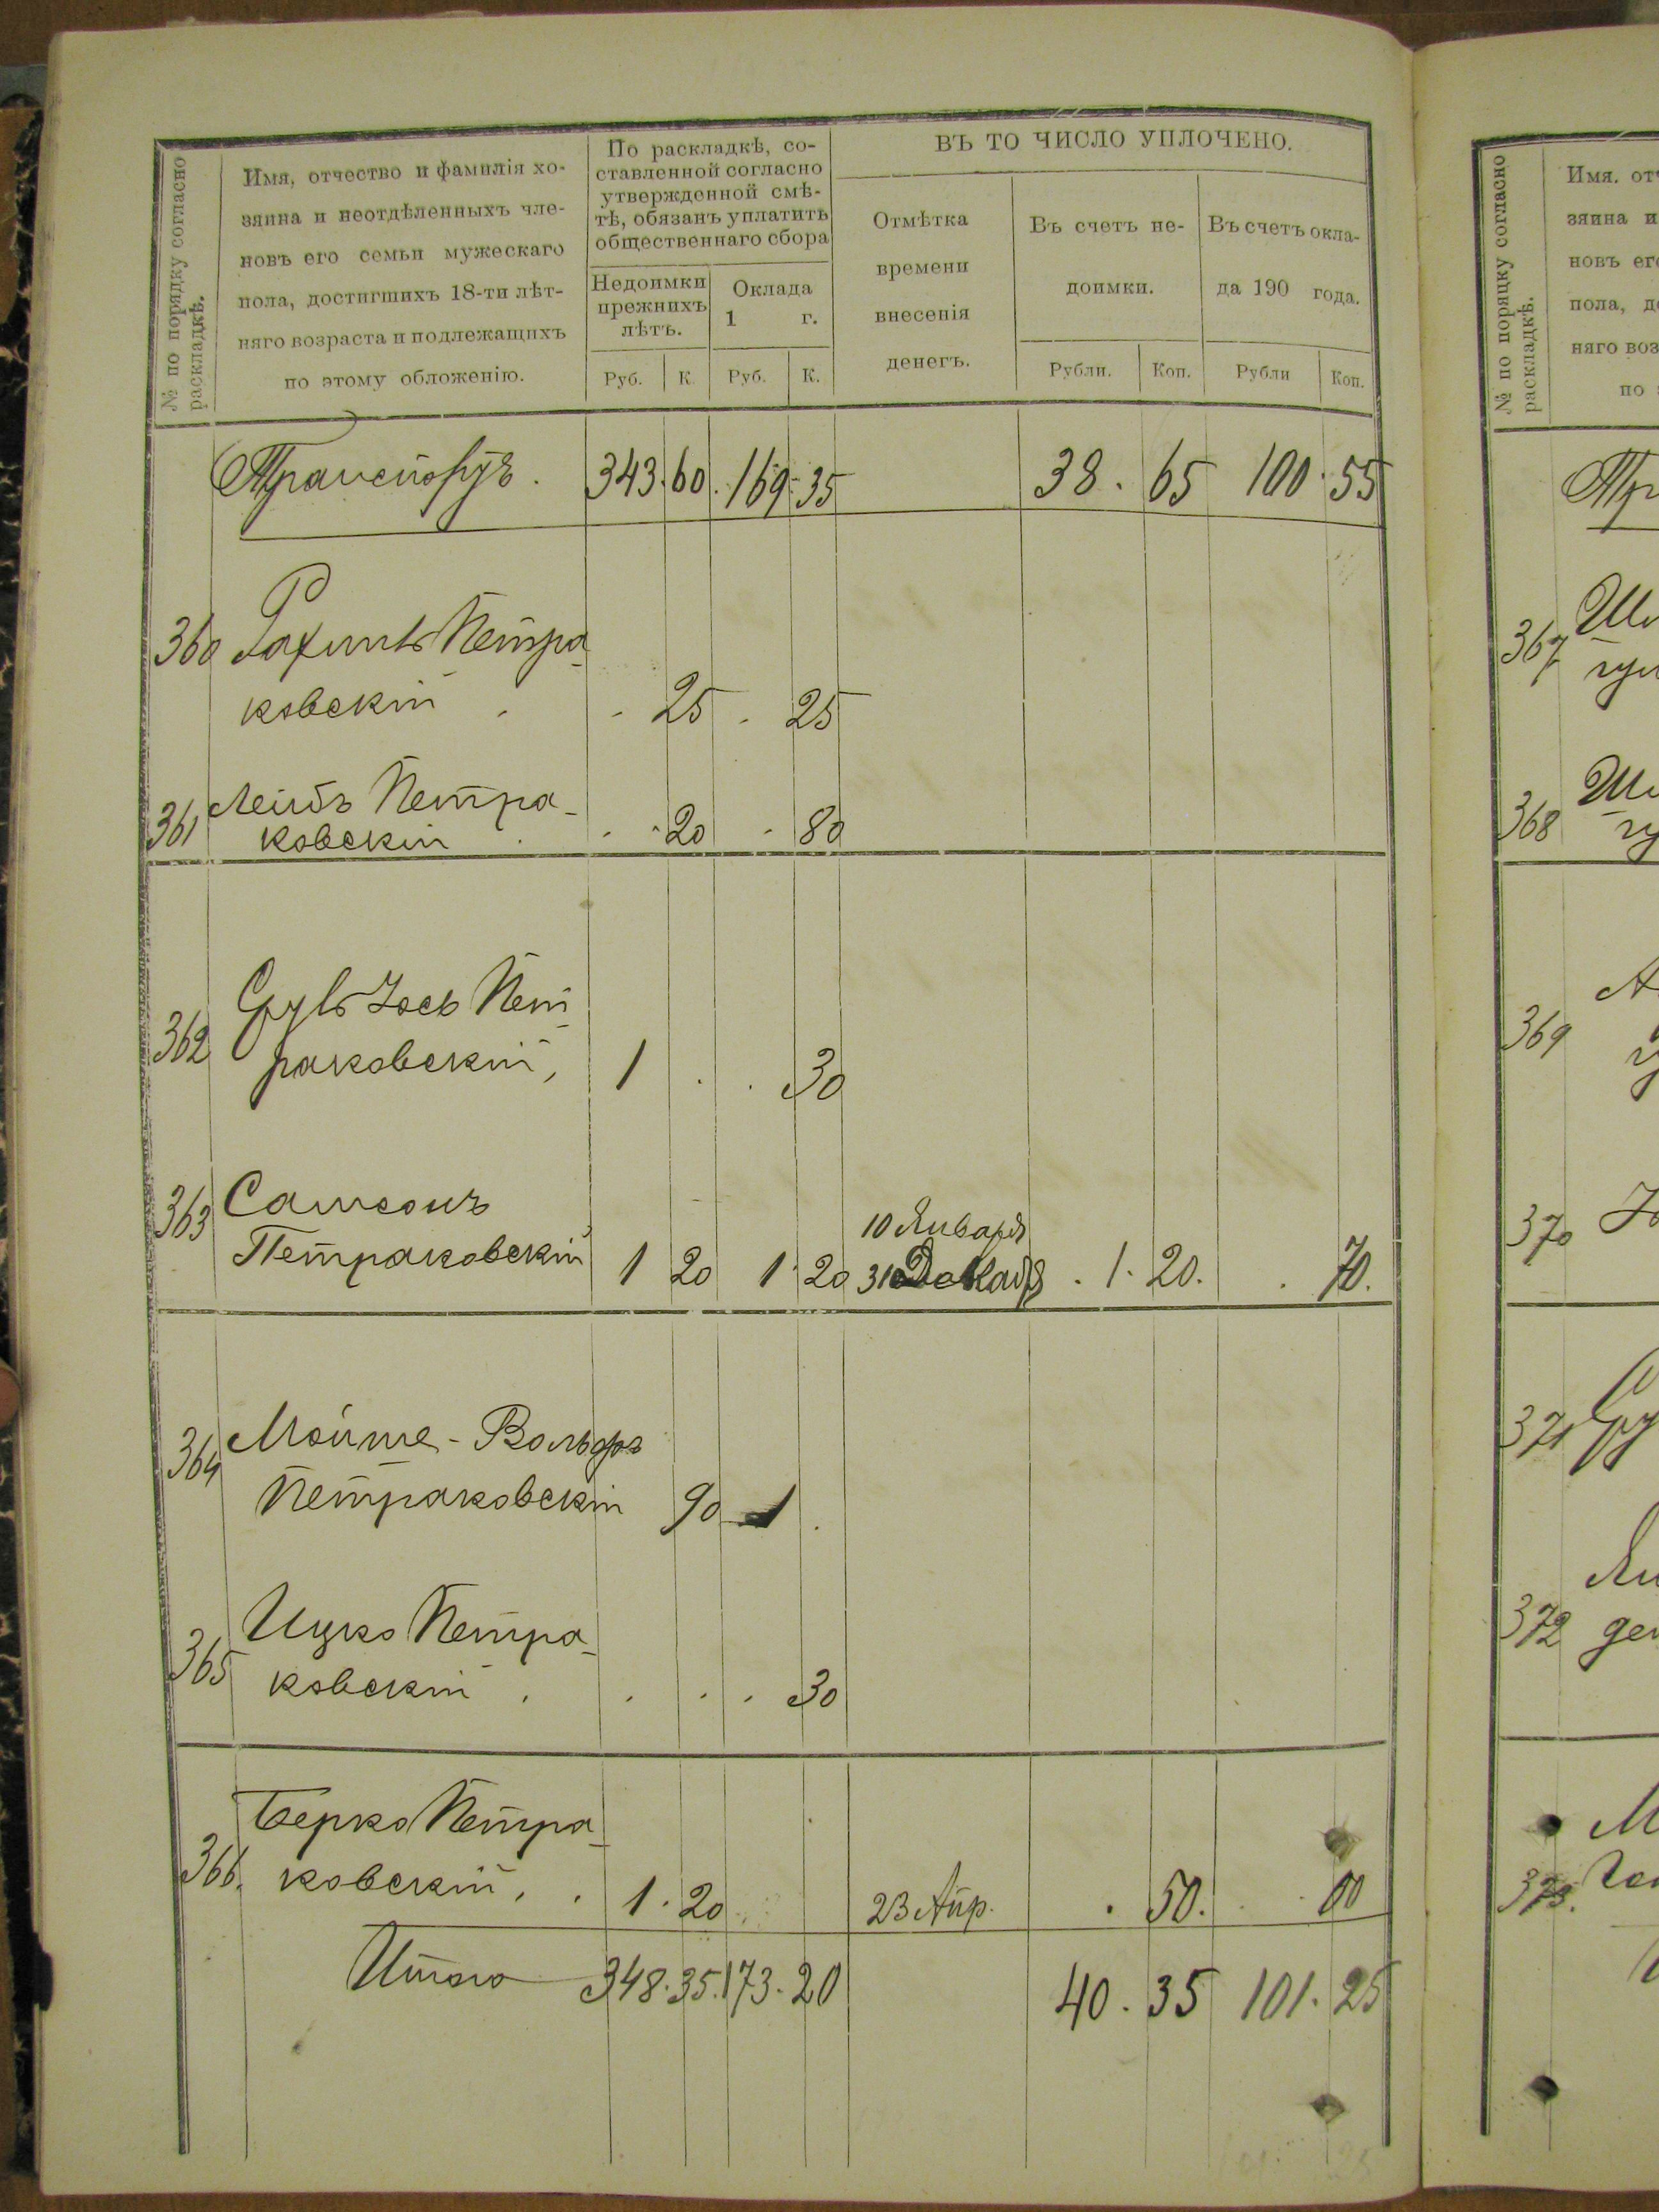 № по порядку согласно
раскладкѣ.
Имя, отчество и фамилія хо-
зяина и неотдѣленныхъ чле-
новъ его семьи мужескаго
пола, достигшихъ 18-ти лѣт-
няго возраста и подлежащихъ
по этому обложенію.
По раскладкѣ, со-
ставленной согласно
утвержденной смѣ-
тѣ, обязанъ уплатить
общественнаго сбора
Недоимки
прежнихъ
лѣтъ.
Оклада
1 г.
Руб. К. Руб. К.
ВЪ ТО ЧИСЛО УПЛОЧЕНО.
Отмѣтка
времени
внесенія
денегъ.
Въ счетъ не-
доимки.
Въ счетъ окла-
да 190 года.
Рубли. Коп. Рубли Коп.
Транспортъ. 343. 60. 169. 35 38. 65 100. 55
360 Рахмиль Петра-
ковскій . - 25 . 25
361 Лейбъ Петра-
ковскій . - 20 - 80
362 Сруль Іось Пет-
раковскій, 1 . . 30
363 Самсонъ
10 Января
Петраковскій 1 20 1 20 31 Декабр . 1. 20. . 70.
364 Мойше-Вольфъ
Петраковскій 90 1 .
365 Ицко Петра-
ковскій . . . . 30
366. Берко Петра-
ковскій, . 1. 20 23 Апр. . 50. . 00
Итого 348. 35. 173. 20 40. 35 101. 25
№ по порядку согласно
раскладкѣ.
Имя. от
зяина и
новъ ег
пола, д
няго воз
по
367
368
369
370
371
372
373.